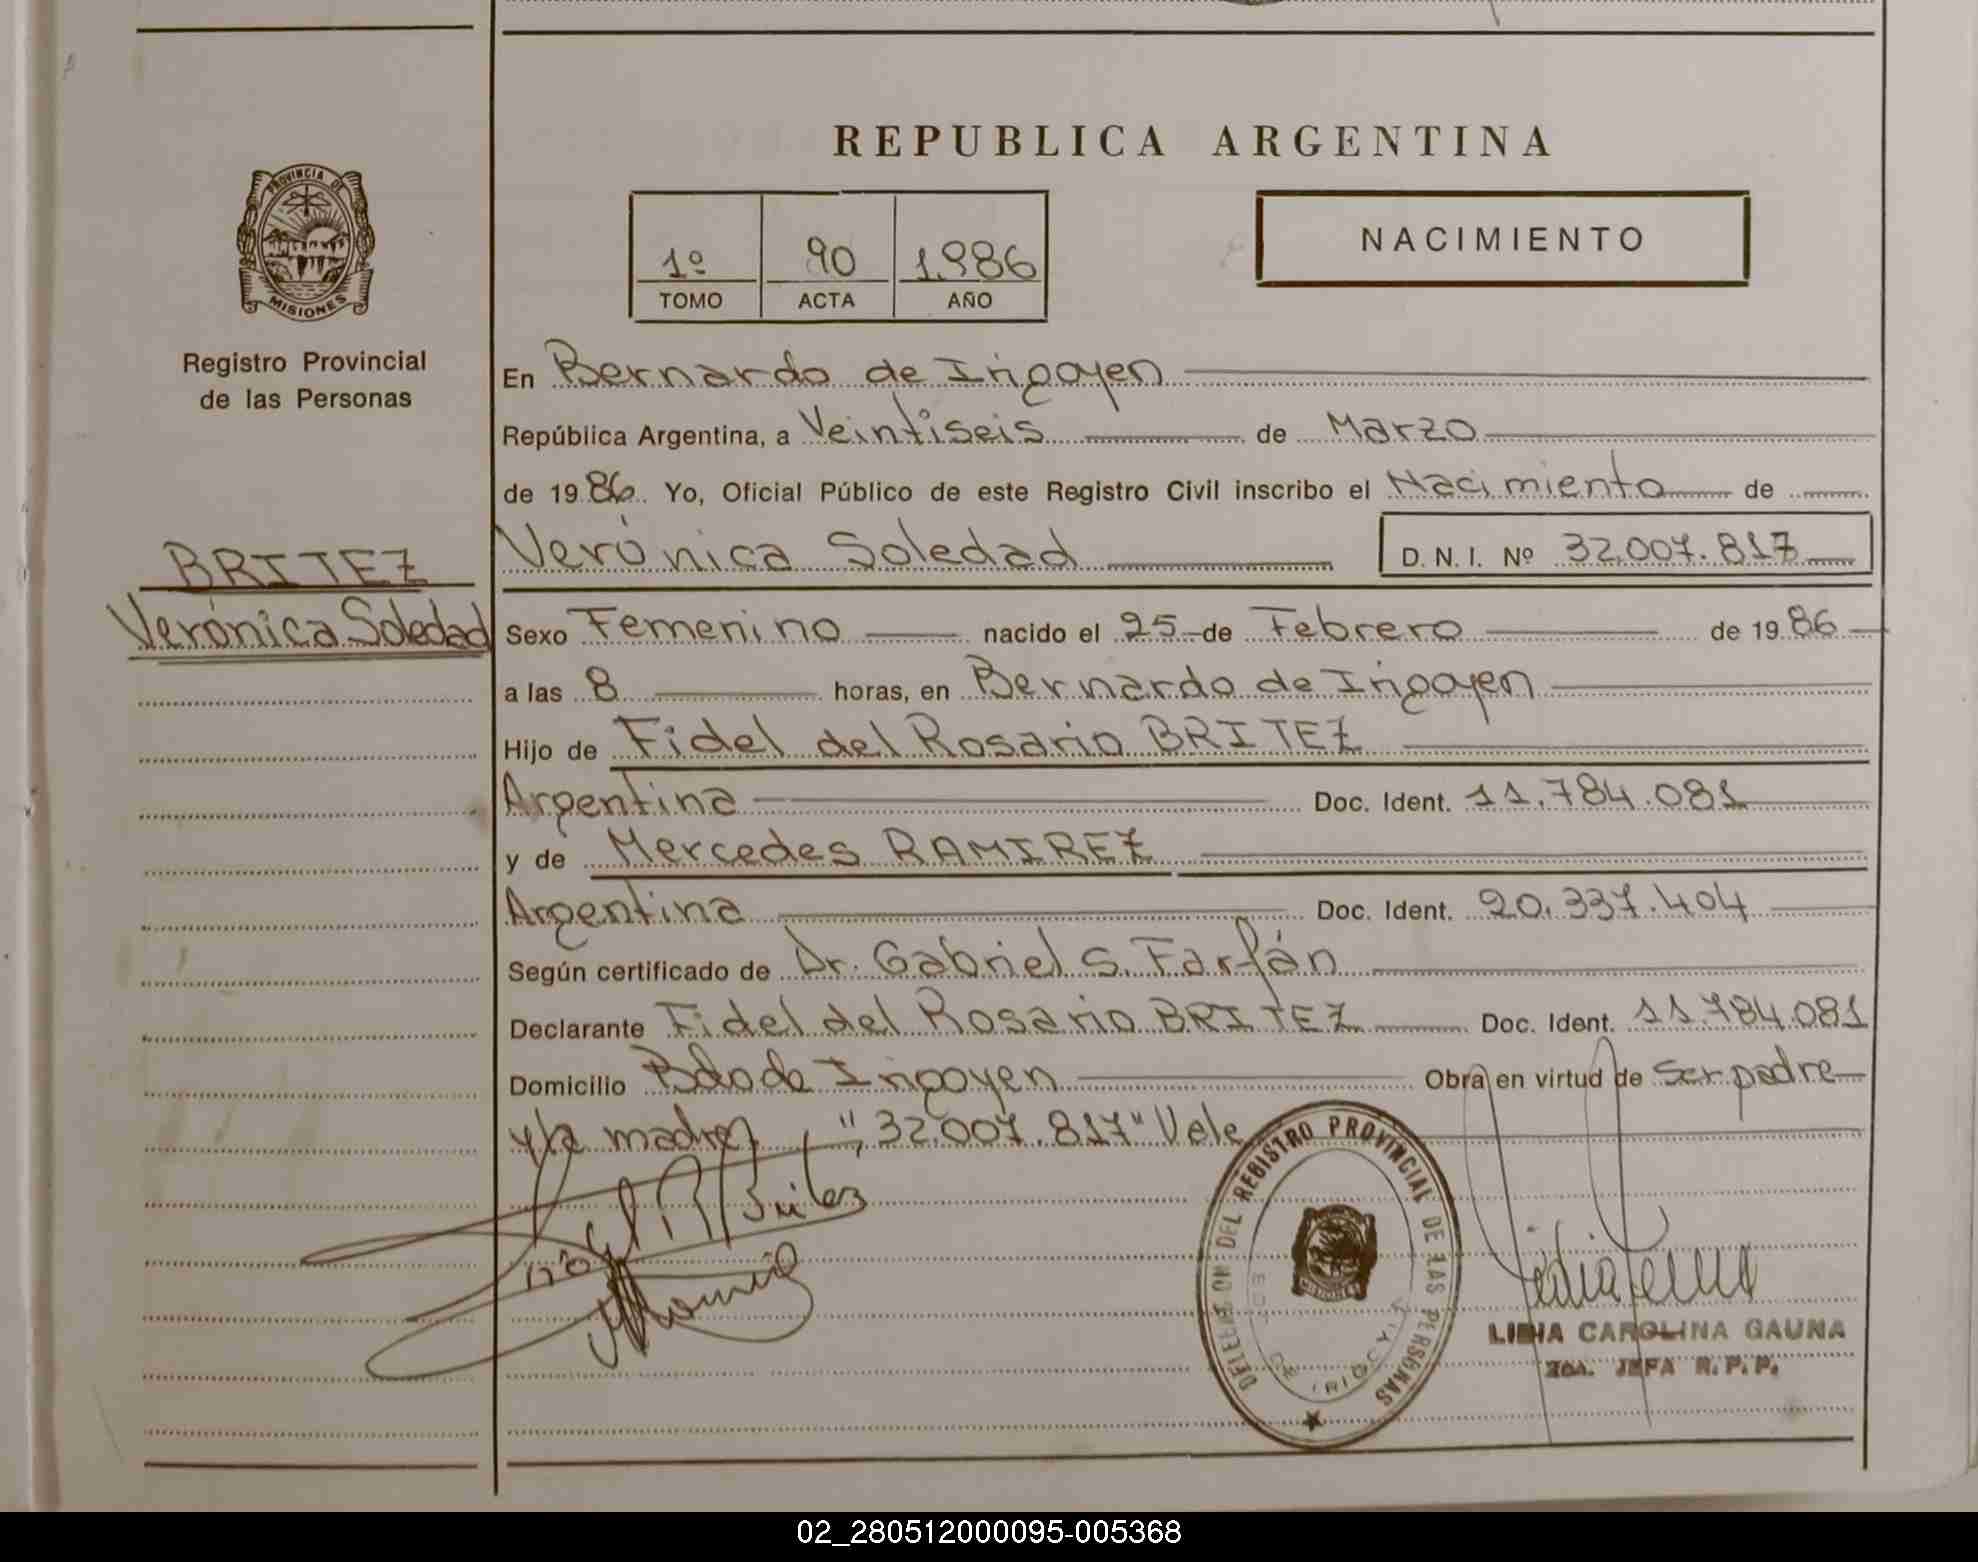 REPUBLICA ARGENTINA
PROVINCIA DE
MISIONES
Registro Provincial
de las Personas
1º 90 1.986
TOMO ACTA AÑO
NACIMIENTO
En Bernardo de Irigoyen
República Argentina, a Veintiseis de Marzo
de 19 86 Yo, Oficial Público de este Registro Civil inscribo el Nacimiento de
Verónica Soledad D. N. I. Nº 32.007.817
BRITEZ
Verónica Soledad
Sexo Femenino nacido el 25 de Febrero de 19 86
a las 8 horas, en Bernardo de Irigoyen
Hijo de Fidel del Rosario BRITEZ
Argentina Doc. Ident. 11.784.081
y de Mercedes RAMIREZ
Argentina Doc. Ident. 20.337.404
Según certificado de Dr. Gabriel S. Farfán
Declarante Fidel del Rosario BRITEZ Doc. Ident. 11.784.081
Domicilio Bdo de Irigoyen Obra en virtud de ser padre
y la madre, "32.007.817" Vale
DELEGACION DEL REGISTRO PROVINCIAL DE LAS PERSONAS
MISIONES
LIDIA CAROLINA GAUNA
JEFA R. P. P.
02_280512000095-005368